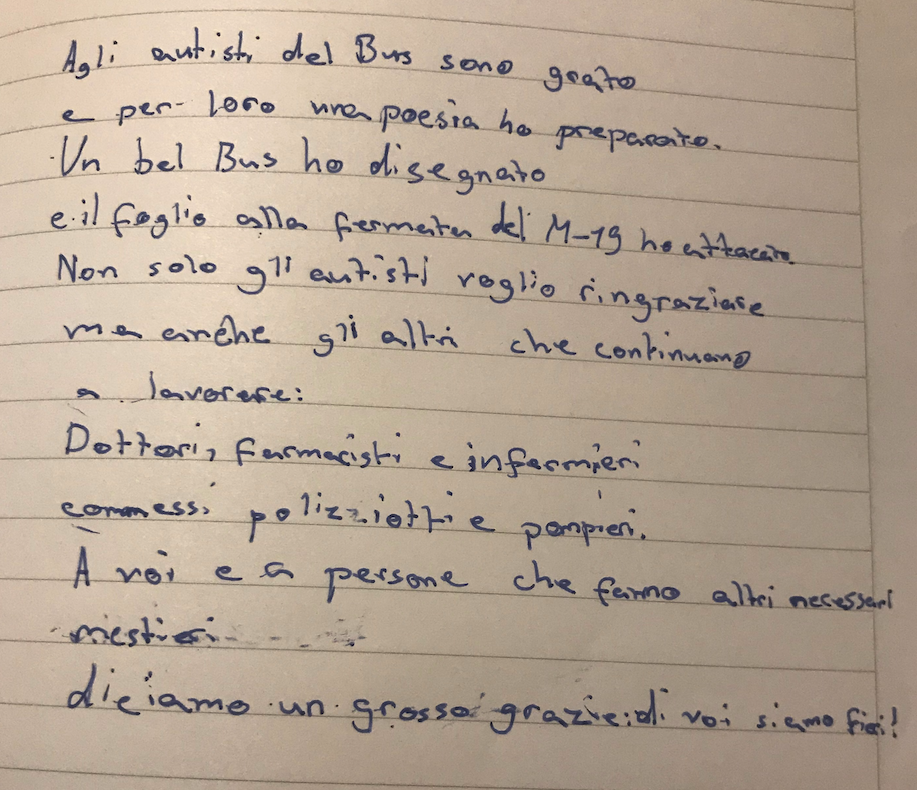 Agli autisti del Bus sono grato
e per loro una poesia ho preparato.
Un bel Bus ho disegnato
e il foglio alla fermata del M-19 ho attaccato.
Non solo gli autisti voglio ringraziare
ma anche gli altri che continuano
a lavorare:
Dottori, farmacisti e infermieri
commessi polizziotti e pompieri.
A voi e a persone che fanno altri necessari
mestieri
diciamo un grosso grazie: di voi siamo fieri!